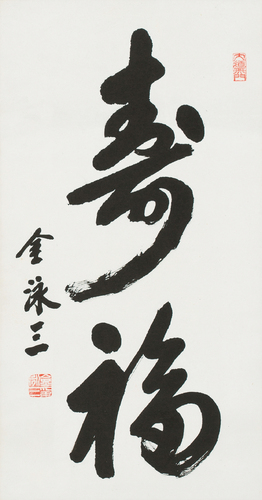 壽福
金泳三